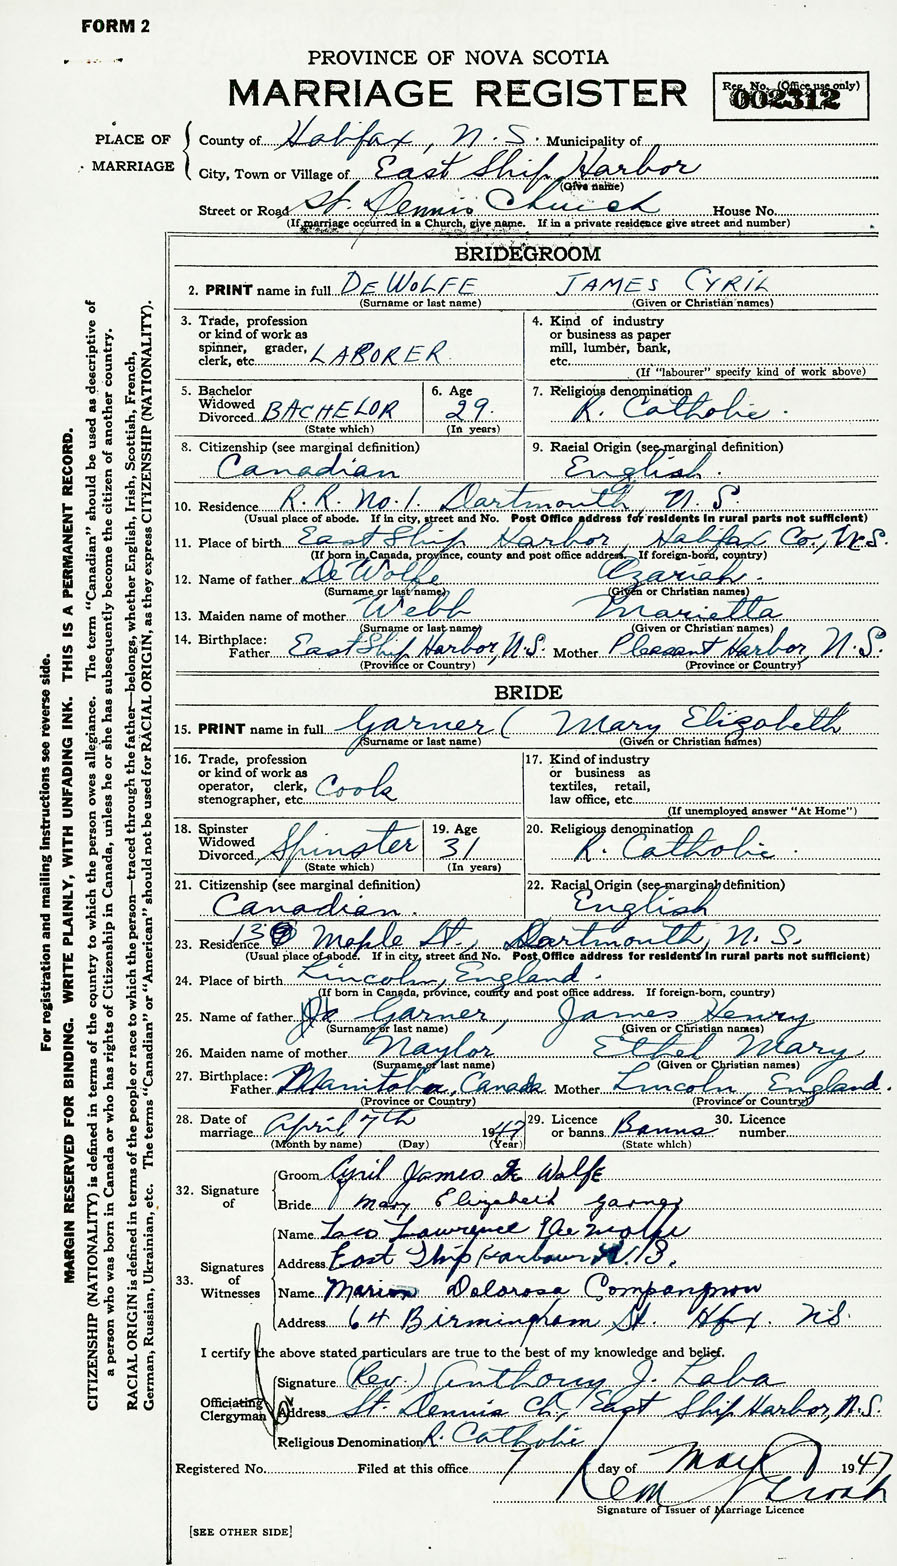 FORM 2
PROVINCE OF NOVA SCOTIA
MARRIAGE REGISTER
Reg. No. (Office use only)
002312
PLACE OF MARRIAGE
County of Halifax, N.S. Municipality of
City, Town or Village of East Ship Harbor
(Give name)
Street or Road St. Dennis Church House No.
(If marriage occurred in a Church, give name. If in a private residence give street and number)
BRIDEGROOM
2. PRINT name in full DEWOLFE JAMES CYRIL
(Surname or last name) (Given or Christian names)
3. Trade, profession or kind of work as spinner, grader, clerk, etc. LABORER
4. Kind of industry or business as paper mill, lumber, bank, etc.
(If "labourer" specify kind of work above)
5. Bachelor Widowed Divorced BACHELOR
(State which)
6. Age 29.
(In years)
7. Religious denomination R. Catholic.
8. Citizenship (see marginal definition) Canadian
9. Racial Origin (see marginal definition) English.
10. Residence R.R. No. 1. Dartmouth, N.S.
(Usual place of abode. If in city, street and No. Post Office address for residents in rural parts not sufficient)
11. Place of birth East Ship Harbor, Halifax Co., N.S.
(If born in Canada, province, county and post office address. If foreign-born, country)
12. Name of father De Wolfe Azariah.
(Surname or last name) (Given or Christian names)
13. Maiden name of mother Webb Marietta
(Surname or last name) (Given or Christian names)
14. Birthplace: Father East Ship Harbor, N.S. Mother Pleasant Harbor, N.S.
(Province or Country) (Province or Country)
BRIDE
15. PRINT name in full Garner ( Mary Elizabeth
(Surname or last name) (Given or Christian names)
16. Trade, profession or kind of work as operator, clerk, stenographer, etc. Cook
17. Kind of industry or business as textiles, retail, law office, etc
(If unemployed answer "At Home")
18. Spinster Widowed Divorced Spinster
(State which)
19. Age 31
(In years)
20. Religious denomination R. Catholic.
21. Citizenship (see marginal definition) Canadian.
22. Racial Origin (see marginal definition) English
23. Residence Maple St., Dartmouth, N.S.
(Usual place of abode. If in city, street and No. Post Office address for residents in rural parts not sufficient)
24. Place of birth Lincoln, England.
(If born in Canada, province, county and post office address. If foreign-born, country)
25. Name of father Garner, James Henry
(Surname or last name) (Given or Christian names)
26. Maiden name of mother Naylor Ethel Mary
(Surname or last name) (Given or Christian names)
27. Birthplace: Father Manitoba, Canada Mother Lincoln, England.
(Province or Country) (Province or Country)
28. Date of marriage April 7th 1947
(Month by name) (Day) (Year)
29. Licence or banns Banns
(State which)
30. Licence number
32. Signature of
Groom Cyril James De Wolfe
Bride Mary Elizabeth Garner
33. Signatures of Witnesses
Name Lawrence De Wolfe
Address East Ship Harbour N.S.
Name Marion Dolorosa
Address 64 Birmingham St. Hfx. N.S.
I certify the above stated particulars are true to the best of my knowledge and belief.
Officiating Clergyman
Signature (Rev.) Anthony J. Laba
Address St. Dennis Ch., East Ship Harbor, N.S.
Religious Denomination R. Catholic
Registered No. Filed at this office 7 day of May 1947
Signature of Issuer of Marriage Licence
[SEE OTHER SIDE]
For registration and mailing instructions see reverse side.
MARGIN RESERVED FOR BINDING. WRITE PLAINLY, WITH UNFADING INK. THIS IS A PERMANENT RECORD.
CITIZENSHIP (NATIONALITY) is defined in terms of the country to which the person owes allegiance. The term "Canadian" should be used as descriptive of
a person who was born in Canada or who has rights of Citizenship in Canada, unless he or she has subsequently become the citizen of another country.
RACIAL ORIGIN is defined in terms of the people or race to which the person—traced through the father—belongs, whether English, Irish, Scottish, French,
German, Russian, Ukrainian, etc. The terms "Canadian" or "American" should not be used for RACIAL ORIGIN, as they express CITIZENSHIP (NATIONALITY).